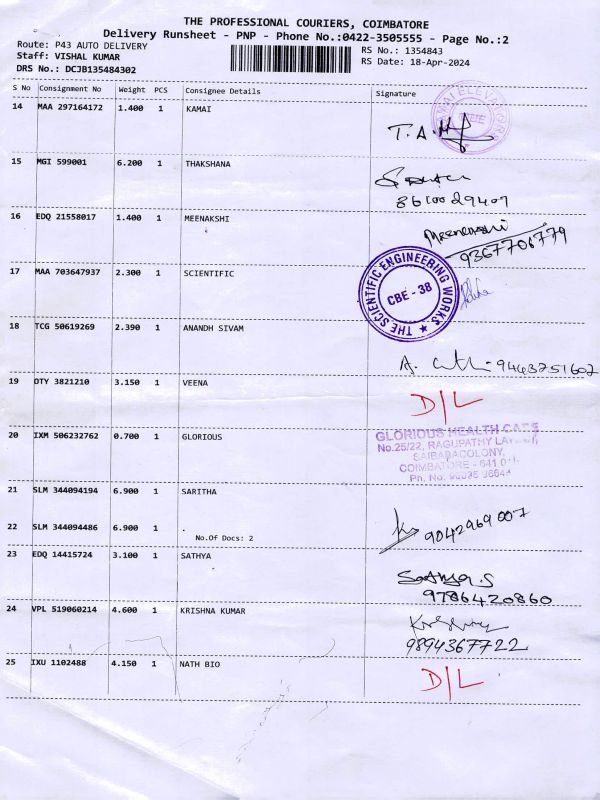 THE PROFESSIONAL COURIERS, COIMBATORE
Delivery Runsheet - PNP - Phone No.:0422-3505555 - Page No.:2
Route: P43 AUTO DELIVERY
RS No.: 1354843
Staff: VISHAL KUMAR
RS Date: 18-Apr-2024
DRS No.: DCJB135484302
S No Consignment No Weight PCS Consignee Details Signature
14 MAA 297164172 1.400 1 KAMAI
T.A.
15 MGI 599001 6.200 1 THAKSHANA
8610029407
16 EDQ 21558017 1.400 1 MEENAKSHI
Meenakshi
9367706779
17 MAA 703647937 2.300 1 SCIENTIFIC
THE SCIENTIFIC ENGINEERING WORKS
CBE - 38
18 TCG 50619269 2.390 1 ANANDH SIVAM
A. 9443751602
19 DTY 3821210 3.150 1 VEENA
D/L
20 IXM 506232762 0.700 1 GLORIOUS
GLORIOUS HEALTH CARE
No.25/22, RAGUPATHY
SAIBABACOLONY,
COIMBATORE - 641
Ph, No:
21 SLM 344094194 6.900 1 SARITHA
22 SLM 344094486 6.900 1 .
No.Of Docs: 2
9042969007
23 EDQ 14415724 3.100 1 SATHYA
Sathya.S
9786420860
24 VPL 519060214 4.600 1 KRISHNA KUMAR
9894367722
25 IXU 1102488 4.150 1 NATH BIO
D/L